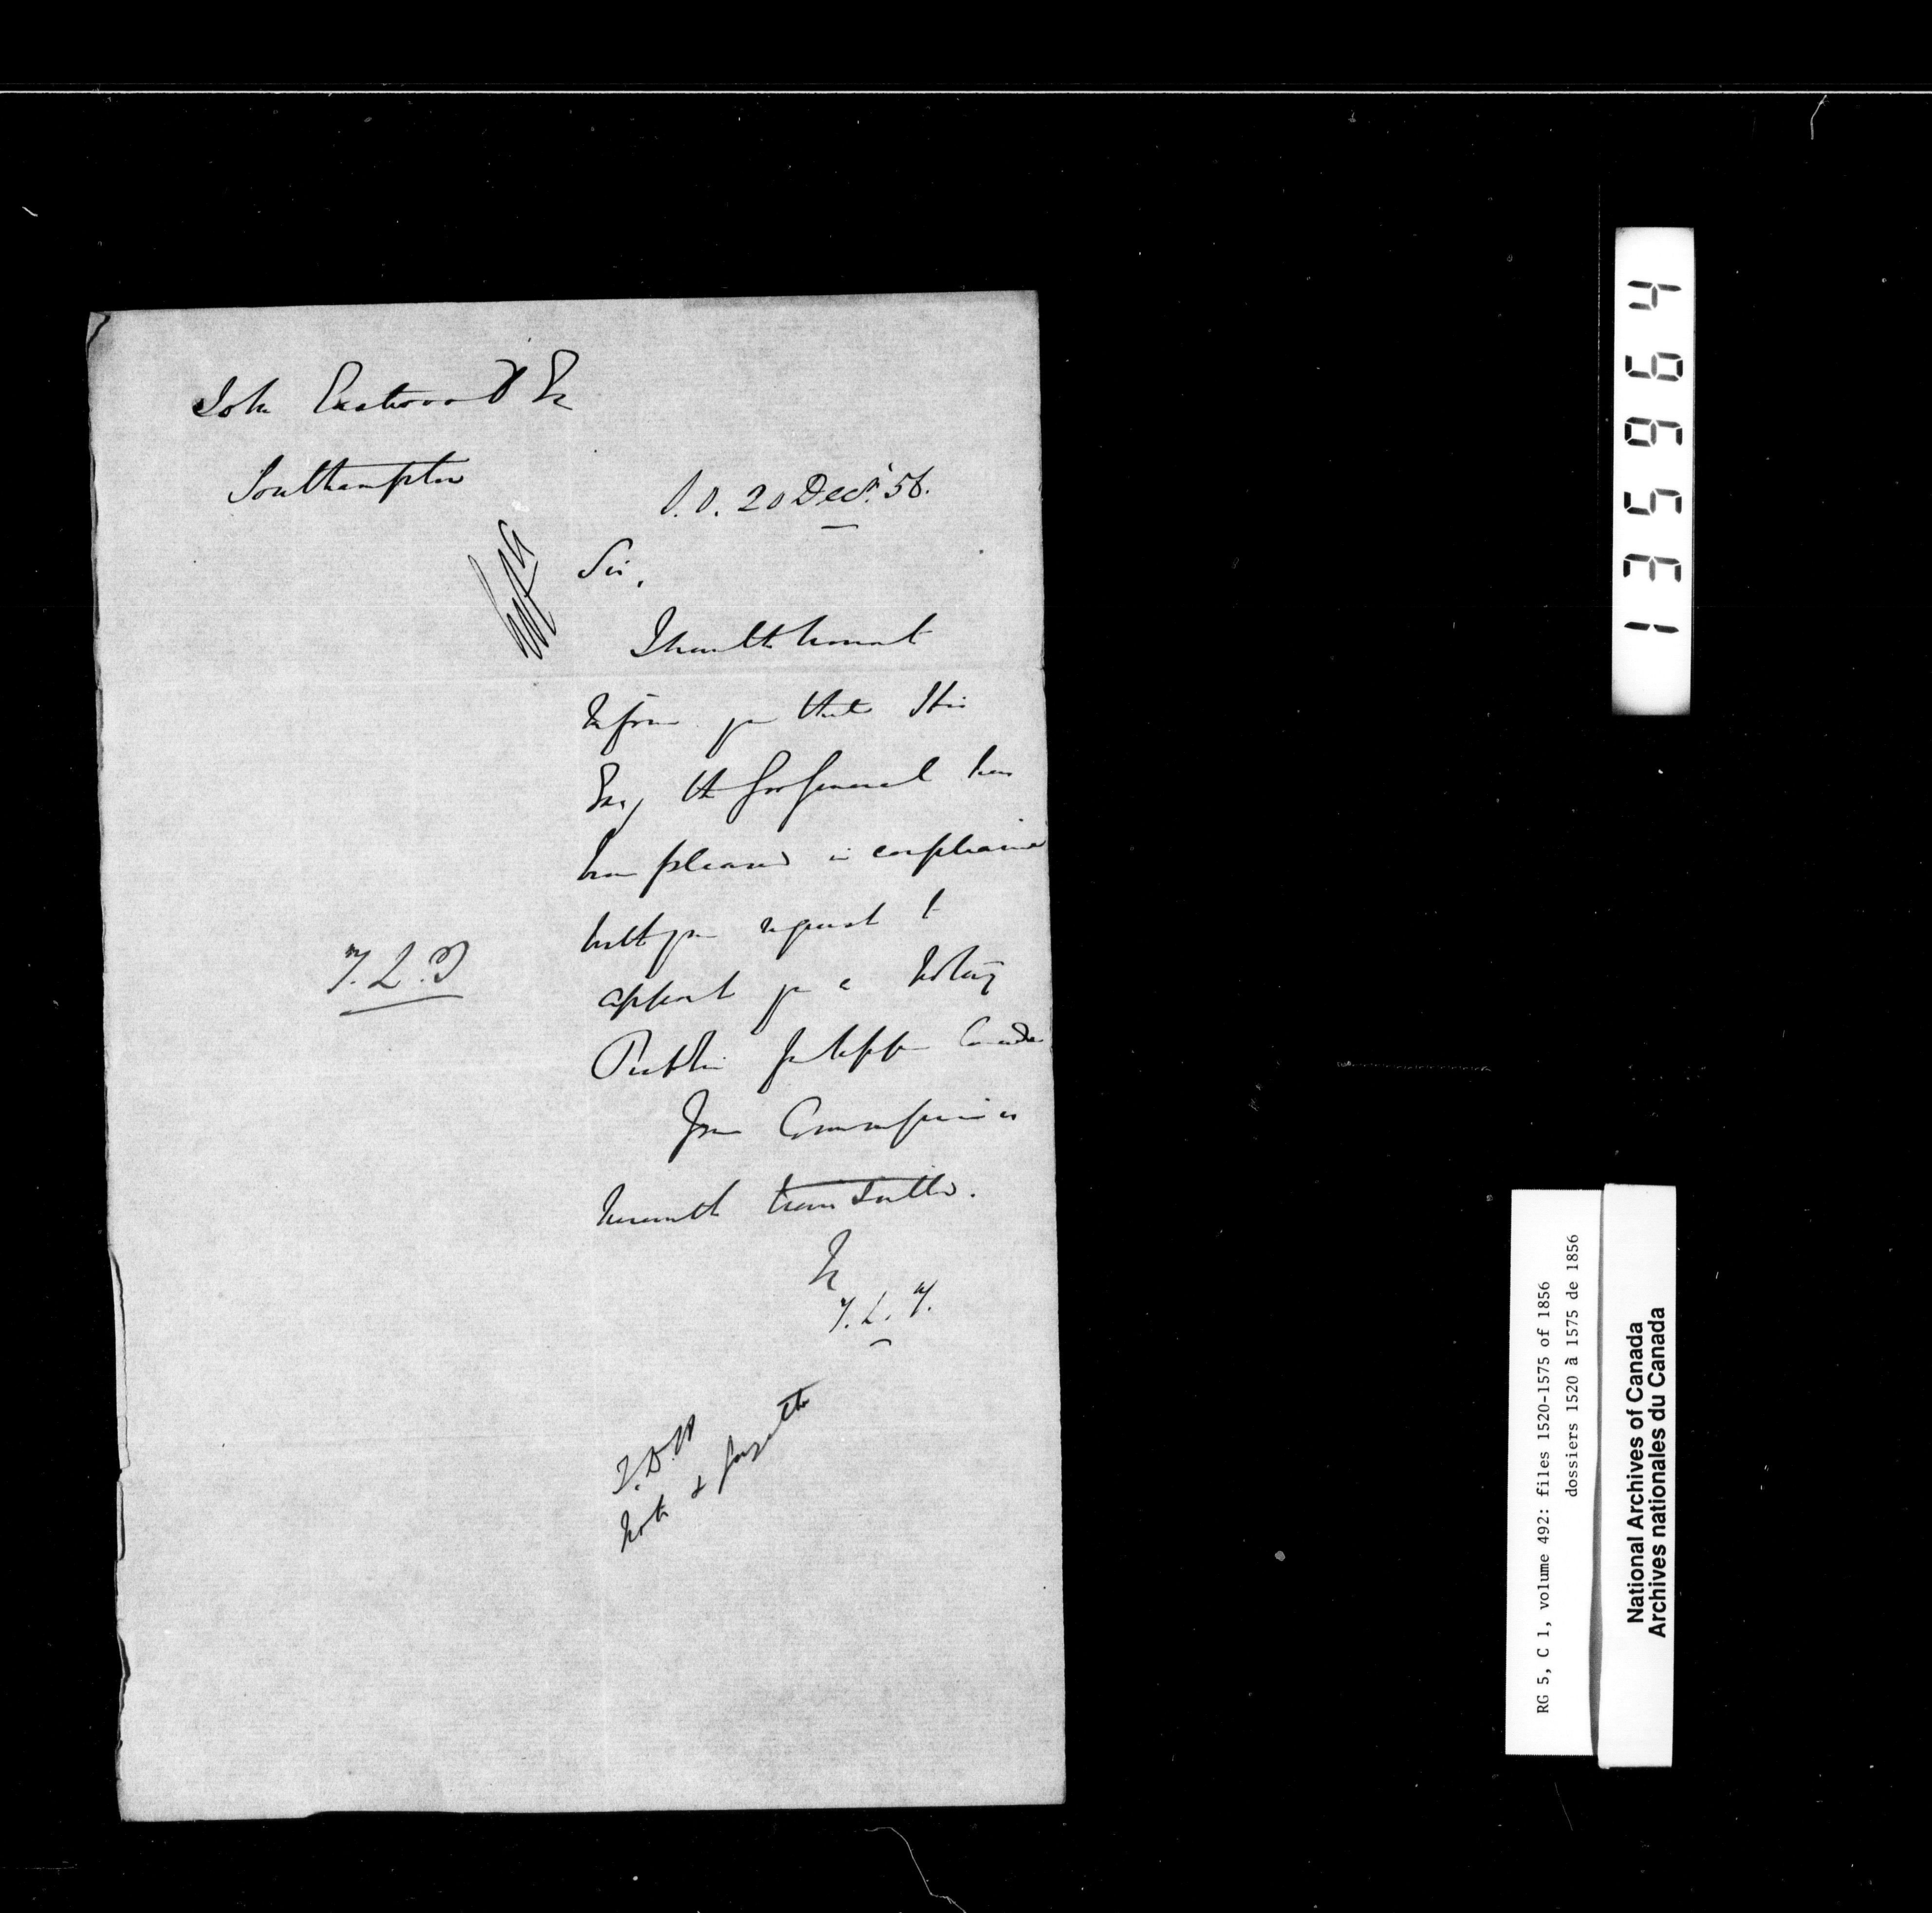 John Eastwood Esq
Southampton
S.O. 20 Decr. 56.
Sir,
I have the honor to
inform you that His
Exy the Gov General has
been pleased in compliance
with your request to
appoint you a Notary
Public for Upper Canada
Your Commission is
herewith transmitted.
T.L.T.
Note & Gazette
135964
RG 5, C 1, volume 492: files 1520-1575 of 1856
dossiers 1520 à 1575 de 1856
National Archives of Canada
Archives nationales du Canada